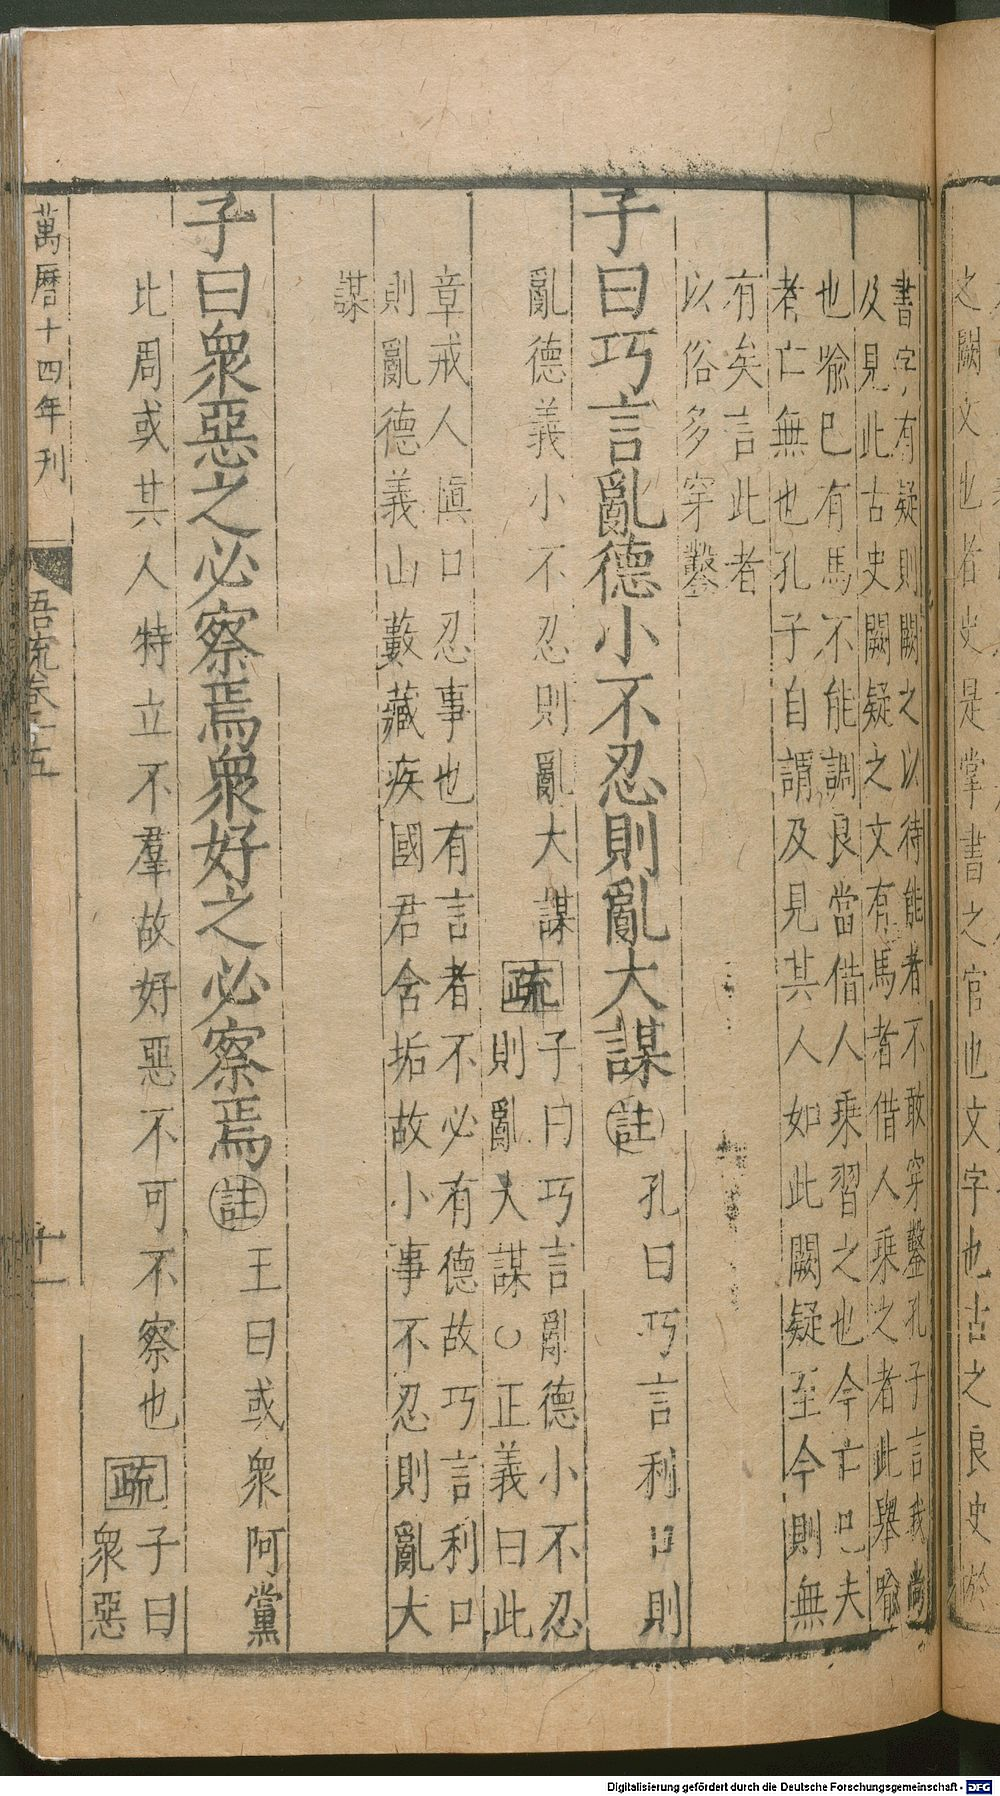 之闕文也者史是掌書之官也文字也古之良史於
書字有疑則闕之以待能者不敢穿鑿孔子言我尚
及見此古史闕疑之文有馬者借人乘之者此舉喻
也喻己有馬不能調良當借人乘習之也今亡已夫
者亡無也孔子自謂及見其人如此闕疑至今則無
有矣言此者
以俗多穿鑿
子曰巧言亂德小不忍則亂大謀 註 孔曰巧言利口則
亂德義小不忍則亂大謀 疏 子曰巧言亂德小不忍
則亂大謀○正義曰此
章戒人慎口忍事也有言者不必有德故巧言利口
則亂德義山藪藏疾國君含垢故小事不忍則亂大
謀
子曰衆惡之必察焉衆好之必察焉 註 王曰或衆阿黨
比周或其人特立不羣故好惡不可不察也 疏 子曰
衆惡
萬曆十四年刊
吾疏卷十五
十一
Digitalisierung gefördert durch die Deutsche Forschungsgemeinschaft - DFG